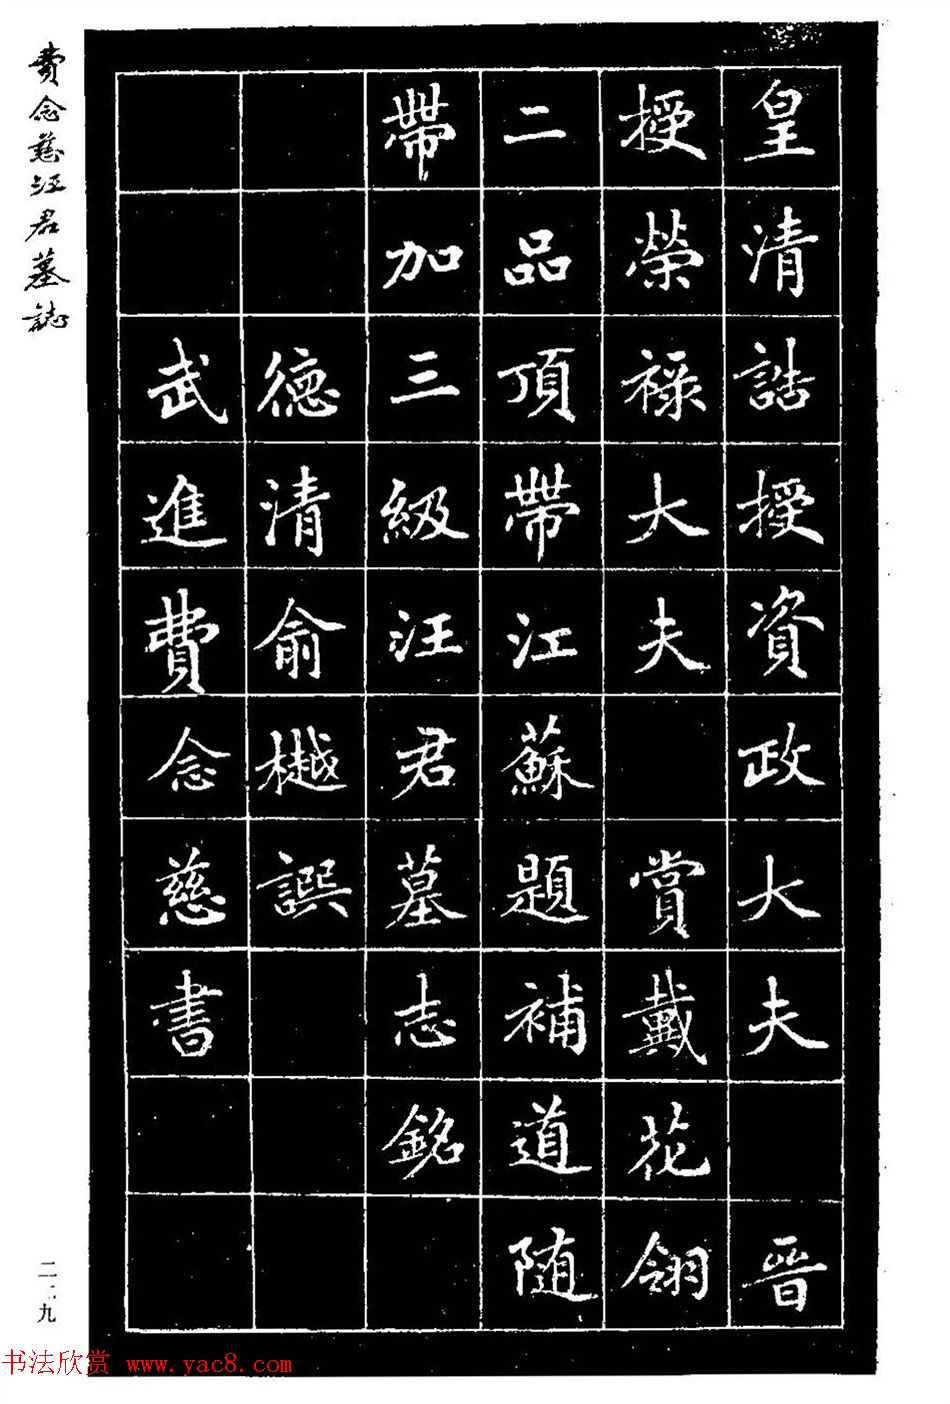 皇清誥授資政大夫 晉
授榮祿大夫 賞戴花翎
二品頂帶江蘇題補道随
帶加三級汪君墓志銘
德清俞樾譔
武進費念慈書
費念慈汪君墓誌
二·九
书法欣赏 www.yac8.com